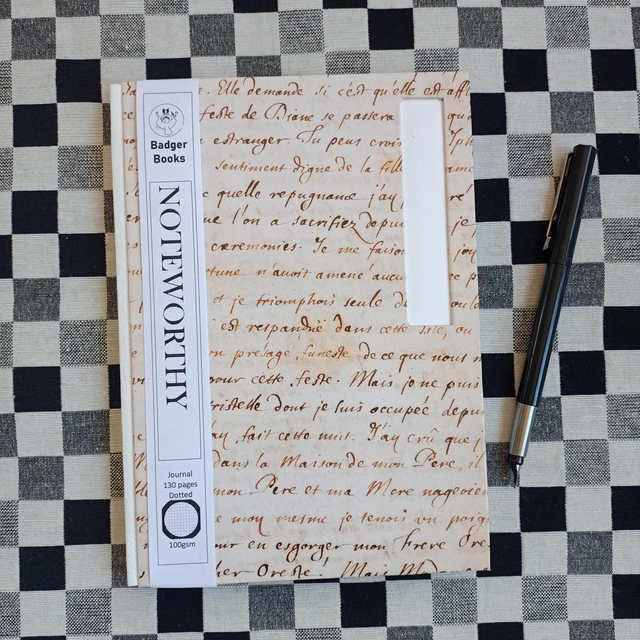 Badger
Books
NOTEWORTHY
Journal
130 pages
Dotted
100gsm
Elle demande si c'est qu'elle est
feste de Diane se passera
estranger. Tu peus
sentiment digne de la
quelle repugnance j'ay
l'on a sacrifiez
ceremonies. Je me
n'auoit amené
et je triomphois seule
est respanduë dans cette
presage funeste de ce que nous
pour cette feste. Mais je ne puis
dont je suis occupée
fait cette nuit. J'ay crû que
dans la Maison de mon Pere, il
mon Pere et ma Mere
moy mesme je tenois vn
pour en esgorger mon frere
Oreste! Mais